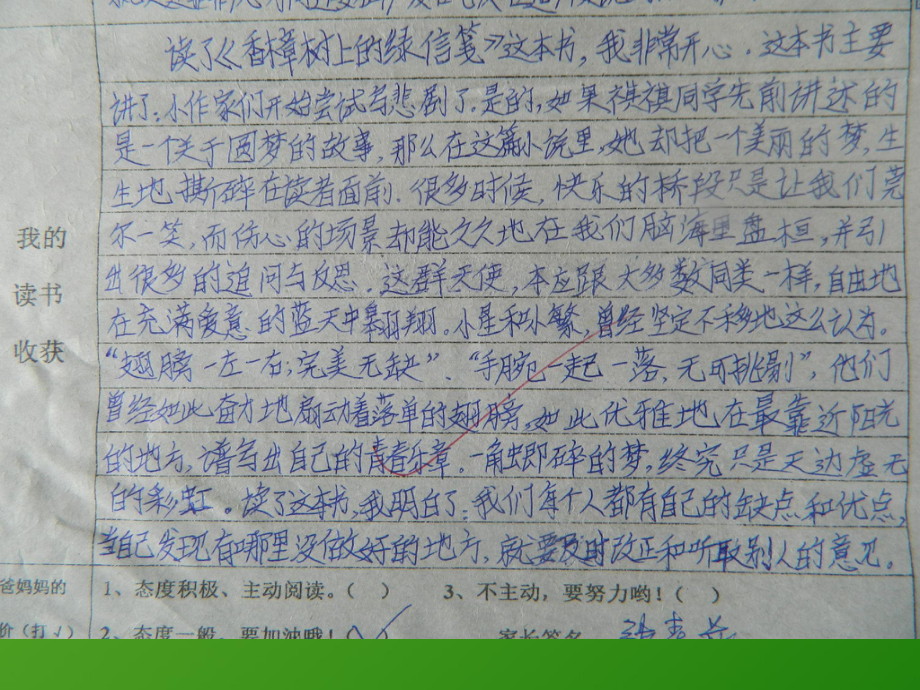 读了《香樟树上的绿信笺》这本书，我非常开心．这本书主要
讲了：小作家们开始尝试写悲剧了．是的，如果祺祺同学先前讲述的
是一个关于圆梦的故事，那么在这篇小说里，她却把一个美丽的梦，生
生地撕碎在读者面前．很多时候，快乐的桥段只是让我们莞
我的
尔一笑，而伤心的场景却能久久地在我们脑海里盘桓，并引
出很多的追问与反思．这群天使，本应跟大多数同类一样，自由地
读书
在充满爱意的蓝天中翱翔．小星和小繁，曾经坚定不移地这么认为。
收获
“翅膀一左一右；完美无缺”、“手腕一起一落，无可挑剔”，他们
曾经如此奋力地扇动着落单的翅膀，如此优雅地在最靠近阳光
的地方，谱写出自己的青春乐章．一触即碎的梦，终究只是天边虚无
的彩虹。读了这本书，我明白了：我们每个人都有自己的缺点和优点，
当自己发现有哪里没做好的地方，就要及时改正和听取别人的意见。
爸妈妈的
1、态度积极、主动阅读。（ ） 3、不主动，要努力哟！（ ）
价（打√）
2、态度一般、要加油哦！（√） 家长签名